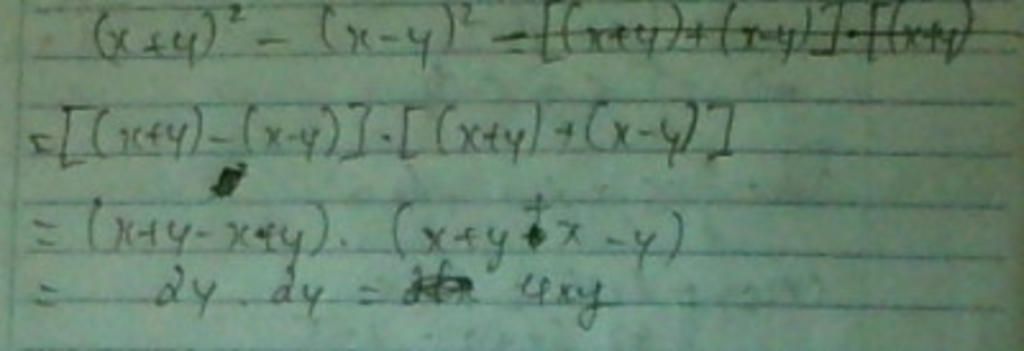 (x+y)² - (x-y)² = [(x+y)+(x-y)]·[(x+y)
=[(x+y)-(x-y)]·[(x+y)+(x-y)]
= (x+y-x+y). (x+y+x-y)
= 2y . 2y = 4xy